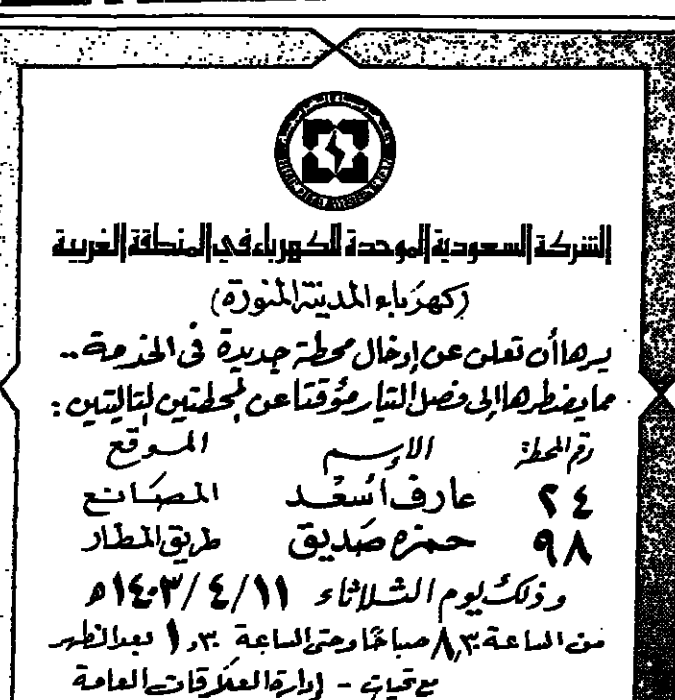 الشركة السعودية الموحدة للكهرباء في المنطقة الغربية
(كهرباء المدينة المنورة)
يسرها أن تعلن عن إدخال محطة جديدة في الخدمة ..
مما يضطرها إلى فصل التيار مؤقتا عن المحطتين التاليتين :
رقم المحطة الإسم الموقع
٢٤ عارف أسعد المصانع
٩٨ حمزه صديق طريق المطار
وذلك ليوم الثلاثاء ١٤٠٣/٤/١١ه
من الساعة ٨,٣٠ صباحًا وحتى الساعة ١,٣٠ بعد الظهر
مع تحيات - إدارة العلاقات العامة